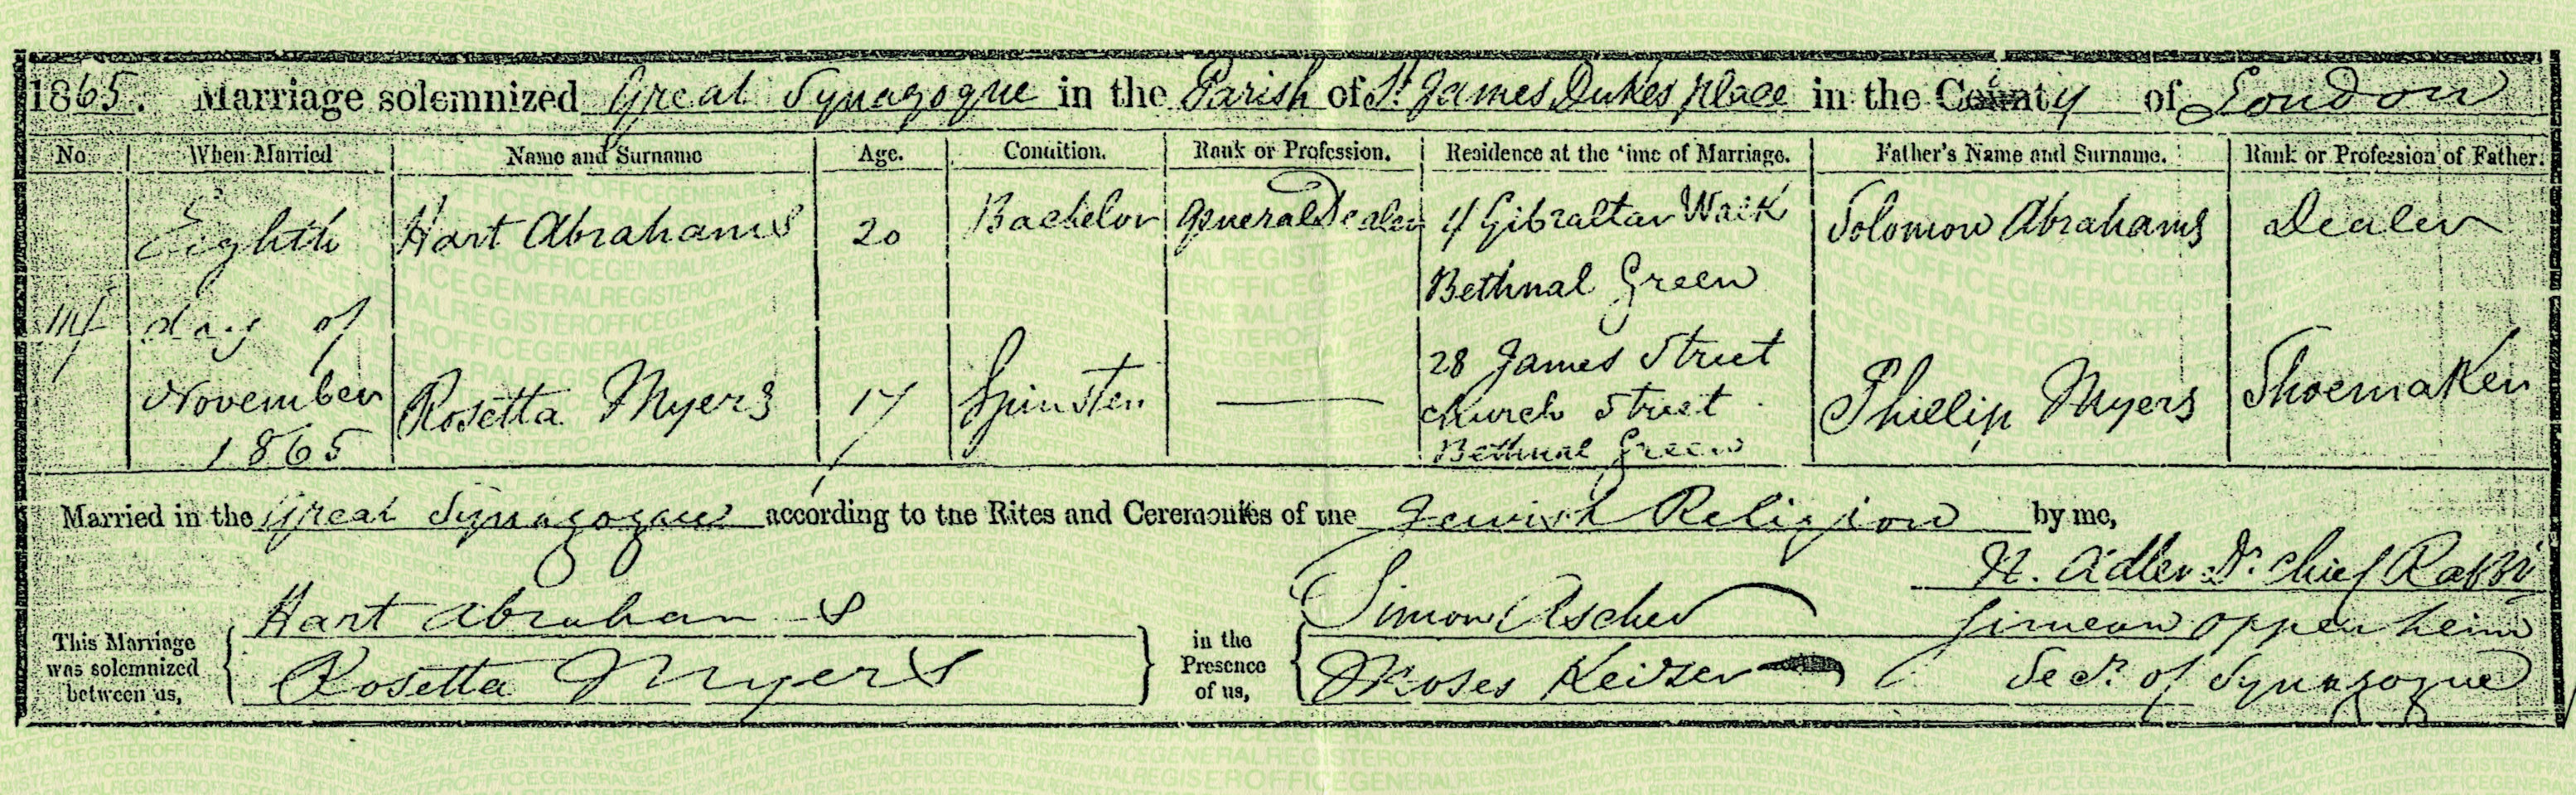 1865. Marriage solemnized Great Synagogue in the Parish of St. James Dukes place in the City of London
No. When Married Name and Surname Age. Condition. Rank or Profession. Residence at the time of Marriage. Father's Name and Surname. Rank or Profession of Father.
Eighth Hart Abrahams 20 Bachelor General Dealer 4 Gibraltar Walk Solomon Abrahams Dealer
Bethnal Green
114 day of
28 James Street
November Rosetta Myers 17 Spinster Church Street Phillip Myers Shoemaker
1865 Bethnal Green
Married in the Great Synagogue according to the Rites and Ceremonies of the Jewish Religion by me,
N. Adler Dr. Chief Rabbi
This Marriage was solemnized between us, Hart Abrahams in the Presence of us, Simon Ascher Simeon Oppenheim
Rosetta Myers Moses Keizer Secr. of Synagogue